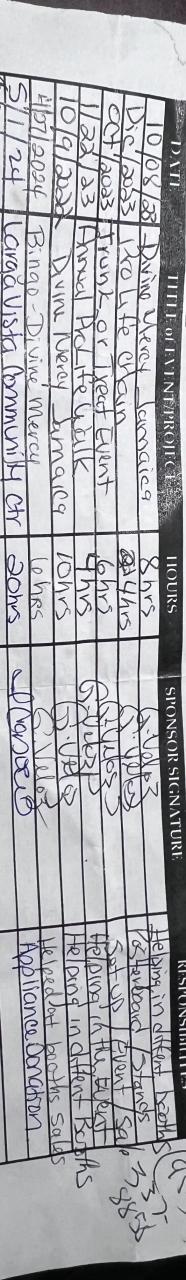 DATE TITLE of EVENT/PROJECT HOURS SPONSOR SIGNATURE RESPONSIBILITIES
10/08/23 Divine Mercy Jamaica 8 hrs G. Velez Helping in diffent booths
Dic/2023 Pro Life chain 4 hrs G. Velez Posterboard / Stands
Oct/2023 Trunk or Treat Event 6 hrs G. Velez Set up / Event /
1/22/23 Annual ProLife Walk 4 hrs G. Velez Helping in the Event
10/9/2022 Divine Mercy Jamaica 10 hrs G. Velez Helping in diffent Booths
2024 Bingo - Divine Mercy 6 hrs G. Velez Helped at booths sales
5/1/24 Larga Vista Community Ctr 20 hrs Appliance Donation
337-
8858